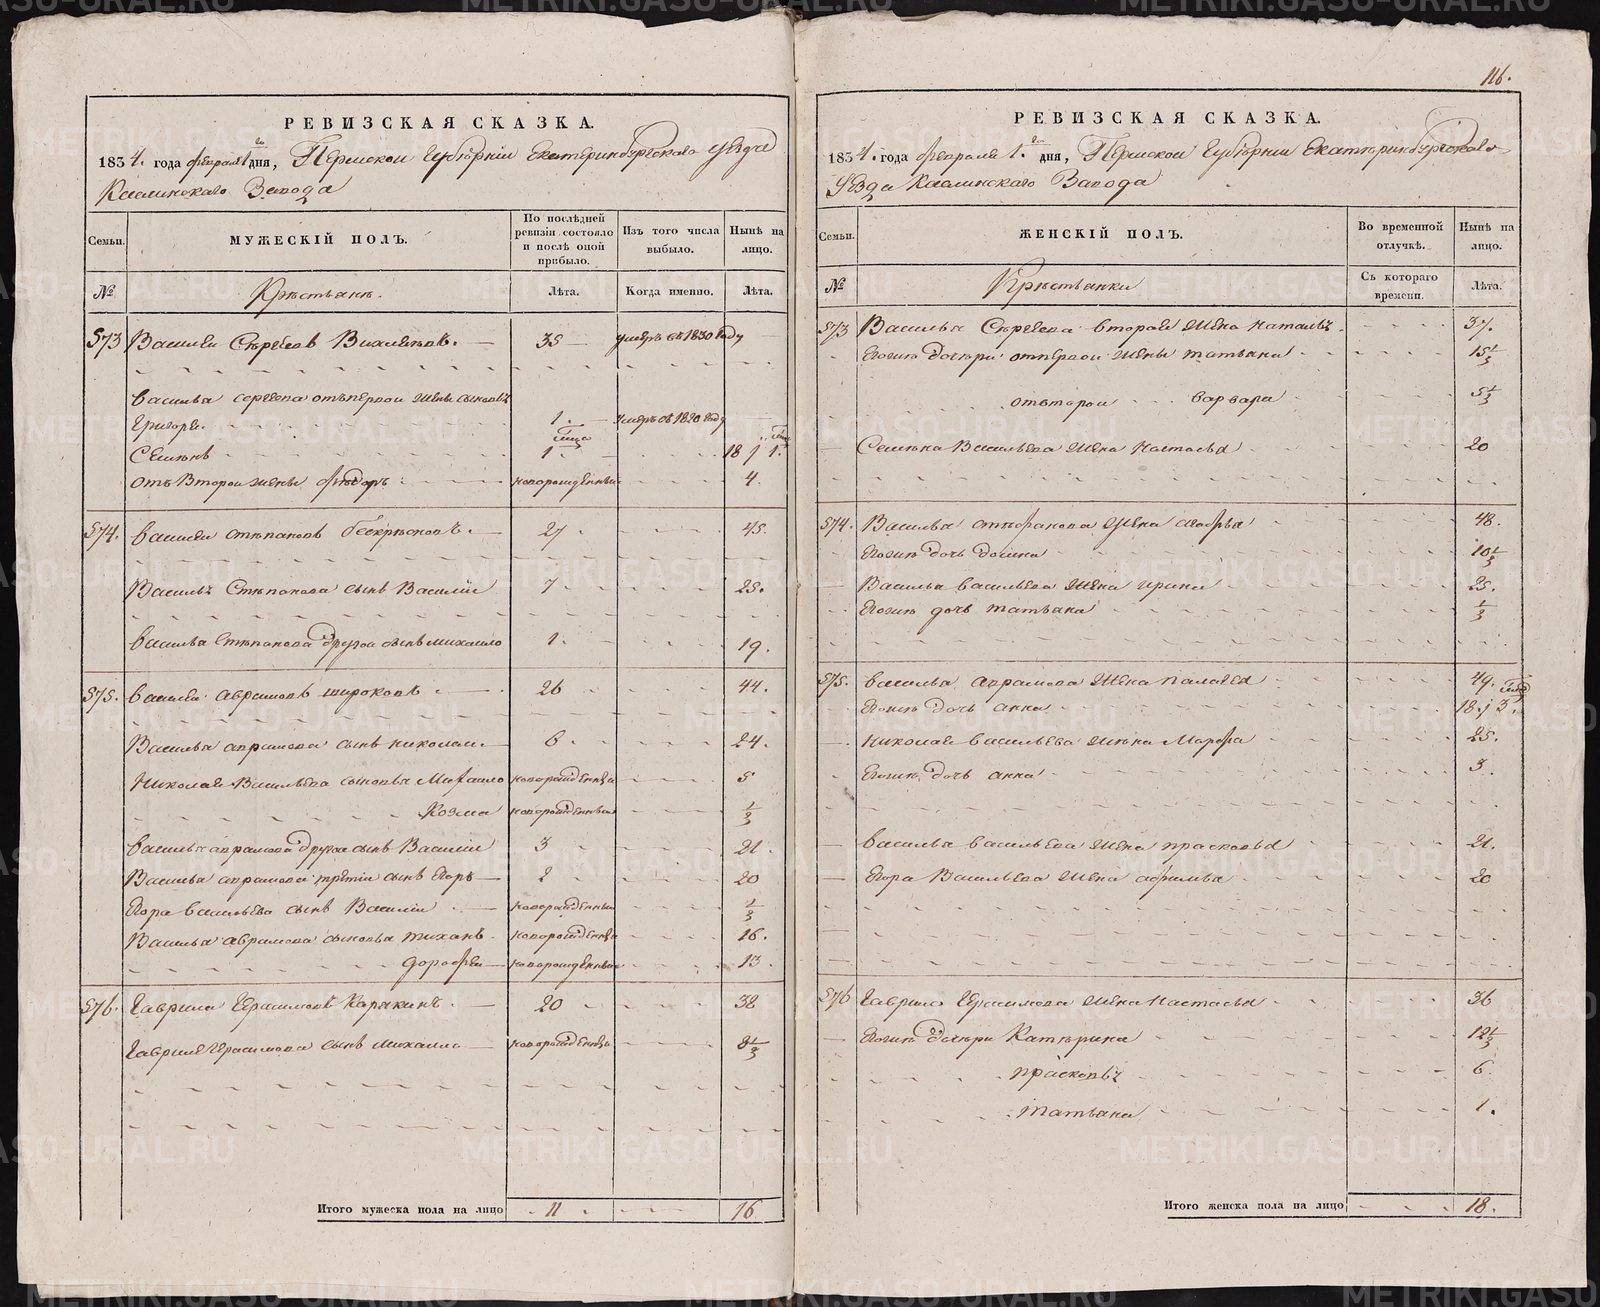 РЕВИЗСКАЯ СКАЗКА.
1834. года февраля 1го дня, Пермской Губернiи Екатеринбургскаго уезда
Каслинскаго Завода
Семьи.
МУЖЕСКIЙ ПОЛЪ.
По послѣдней ревизiи состояло и послѣ оной прибыло.
Изъ того числа выбыло.
Нынѣ на лицо.
№
Крѣстьянѣ.
Лѣта.
Когда именно.
Лѣта.
573 Василеи Сергеевъ 35 умеръ въ 1830 году
Василья сергеева отъ первои жены сыновья
Григореи 1. умеръ въ 1820 году
Семенъ 1 18 1.
отъ Второи жены новорожденныи 4.
574. Василеи степановъ 27 45.
Василья Степанова сынъ Василiи 7 25.
Василья Степанова другои сынъ михаило 1. 19.
575. Василеи аврамовъ широковъ 26 44.
Василья аврамова сынъ николаи 6 24.
Николая Васильева сыновья новорожденныи 5
Козма новорожденныи 1/2
Василья аврамова другои сынъ Василiи 3 21.
Василья аврамова третiи сынъ Егоръ 2 20
Егора васильева сынъ Василiи новорожденныи 1/2
Василья аврамова сыновья тихонъ новорожденныи 16.
дорофеи новорожденныи 13.
576. Гаврило Герасимовъ Карякинъ 20 38
Гаврила Герасимова сынъ михаило новорожденныи 8 1/2
Итого мужеска пола на лицо 11 16
116.
РЕВИЗСКАЯ СКАЗКА.
1834. года февраля 1го дня, Пермской Губернiи Екатеринбургскаго
уезда Каслинскаго Завода
Семьи.
ЖЕНСКIЙ ПОЛЪ.
Во временной отлучкѣ.
Нынѣ на лицо.
№
Крѣстьянки
Съ котораго времени.
Лѣта.
573 Василья Сергеева вторая жена наталья 37.
Егоже дочери отпервои жены татьяна 15 1/2
отвторои варвара 5 1/2
Семена Васильева жена Настасья 20
574. Василья степанова жена 48.
Егоже дочь 10 1/2
Василья васильева жена ирина 25.
Егоже дочь татьяна 1/2
575. Василья аврамова жена палагея 49.
Егоже дочь анна 18. 3.
николая васильева жена Марфа 25.
Егоже дочь анна 3
Василья васильева жена прасковья 21.
Егора Васильева жена афимья 20
576 Гаврила Герасимова жена Настасья 36
Егоже дочери Катерина 12 1/2
прасковья 6
татьяна 1.
Итого женска пола на лицо 18.
METRIKI.GASO-URAL.RU